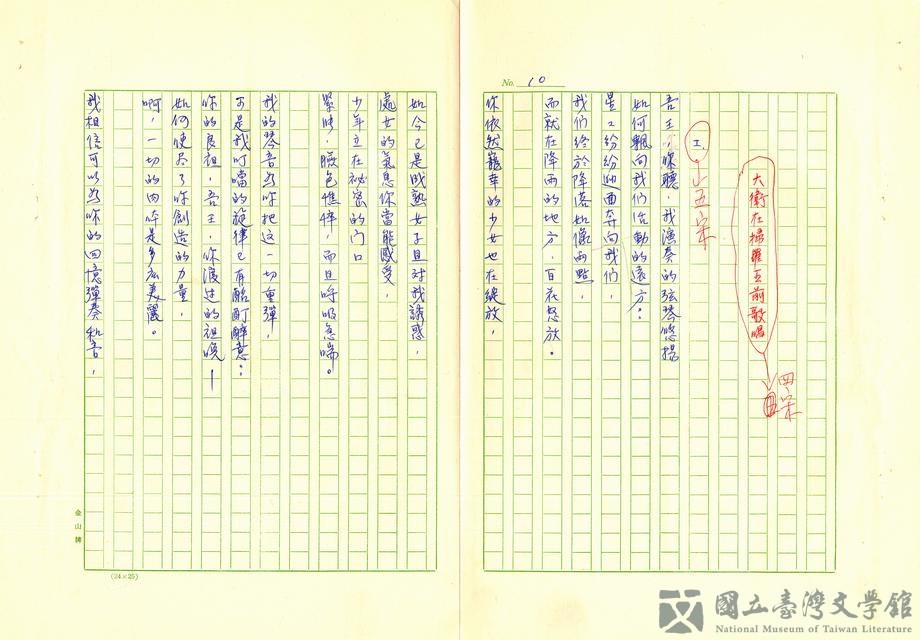 No. 10
大衛在掃羅王前歌唱
四宋
I.
五宋
吾王，傾聽，我演奏的弦琴悠揚
如何飄向我們治動的遠方：
星星紛紛迎面奔向我們，
我們終於降落如像雨點，
而就在降雨的地方，百花怒放。
你依然寵幸的少女也在綻放，
如今已是成熟女子且對我誘惑，
處女的氣息你當能感受，
少年立在祕密的門口
緊張，臉色憔悴，而且呼吸急喘。
我的琴音為你把這一切重彈，
可是我叮噹的旋律已有酩酊醉意：
你的良祖，吾王，你渡過的祖晚—
如何使盡了你創造的力量，
啊，一切的肉體是多麼美麗。
我相信可以為你的回憶彈奏和音，
金山牌
(24×25)
國立臺灣文學館
National Museum of Taiwan Literature